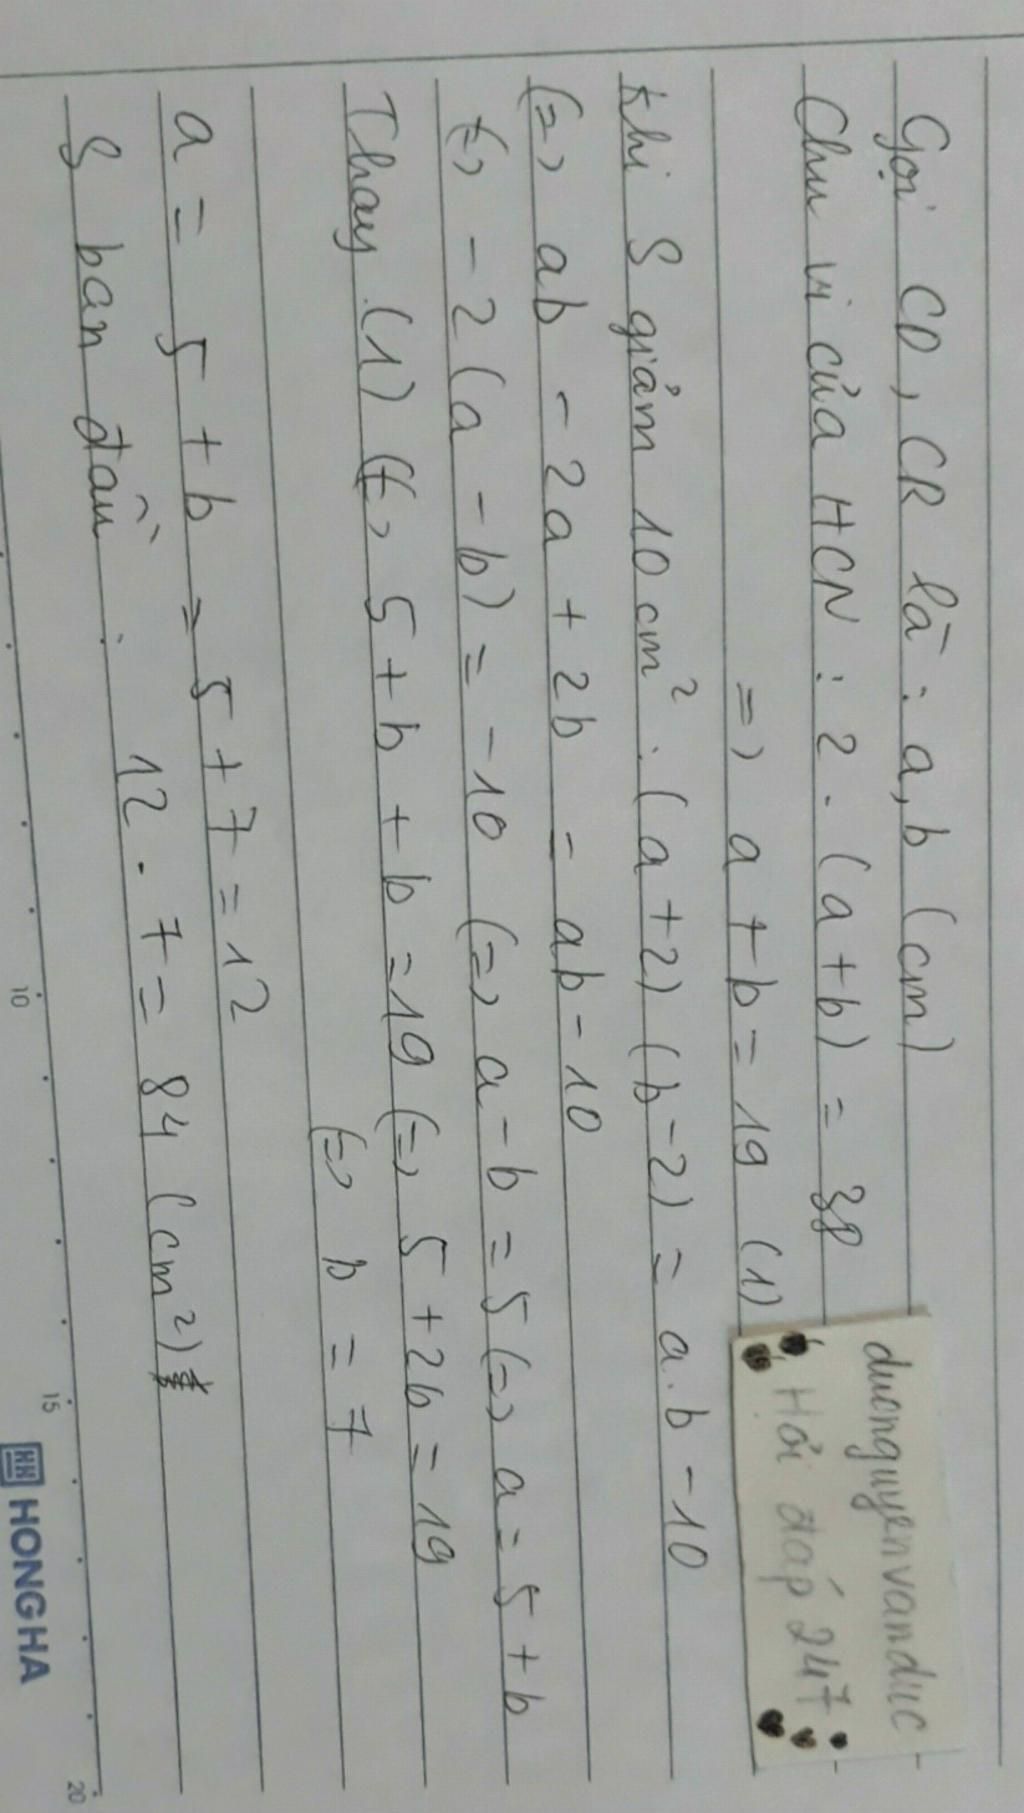 Gọi CD, CR là : a, b (cm)
Chu vi của HCN : 2 . (a+b) = 38
=> a + b = 19 (1)
Khi S giảm 10 cm² : (a+2) (b-2) = a.b - 10
(=> ab - 2a + 2b = ab - 10
(=> - 2 (a - b) = - 10 (=> a - b = 5 (=> a = 5 + b
Thay (1) (=> 5 + b + b = 19 (=> 5 + 2b = 19
(=> b = 7
a = 5 + b = 5 + 7 = 12
S ban đầu : 12 . 7 = 84 (cm²)
ducnguyenvanduc
Hỏi đáp 247
10
15
20
HH HONG HA